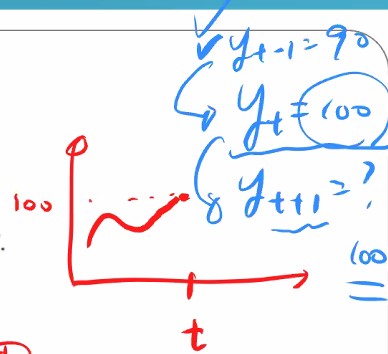 y_{t-1} = 90
y_t = 100
y_{t+1} = ?
100
100
t